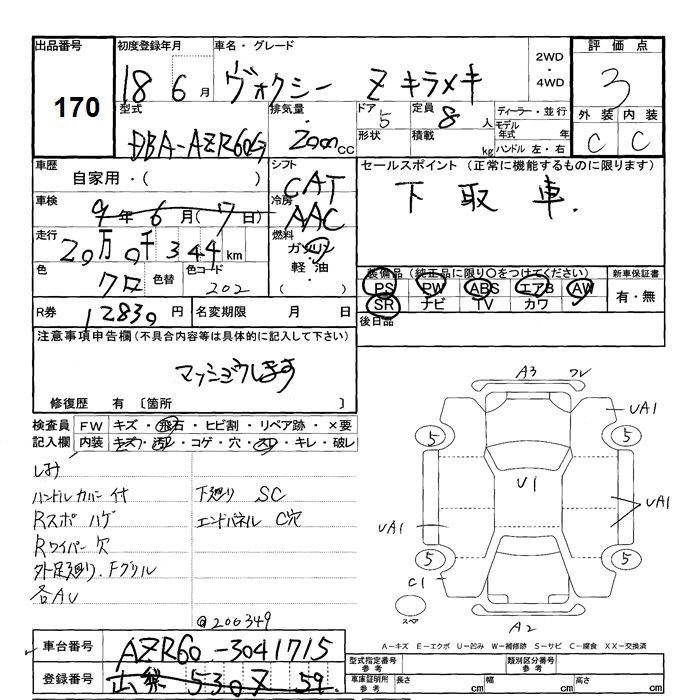 出品番号 初度登録年月 車名・グレード 2WD・4WD 評価点
170 18 6月 ヴォクシー Z キラメキ 3
型式 排気量 ドア 5 定員 8人 ディーラー・並行 外装 内装
DBA-AZR60G 2000cc 形状 積載 kg モデル年式 年 C C
ハンドル 左・右
車歴 自家用・( ) シフト CAT セールスポイント (正常に機能するものに限ります)
車検 9年6月(7日) 冷房 AAC 下取車.
走行 20万0千344km 燃料 ガソリン 軽油 ・( )
色 クロ 色替 色コード 202 装備品 (純正品に限り○をつけてください) 新車保証書
PS PW ABS エアB AW 有・無
SR ナビ TV カワ
R券 12830円 名変期限 月 日 後日品
注意事項申告欄(不具合内容等は具体的に記入して下さい)
修復歴 有 〔箇所 〕
検査員記入欄 FW キズ・飛石・ヒビ割・リペア跡・×要
内装 キズ・汚レ・コゲ・穴・スレ・キレ・破レ
ハンドルカバー付 下廻り SC
Rスポ ハゲ エンドパネル C穴
Rワイパー欠
外足廻り、Fグリル
各AU
@200349
A3 ワレ
UA1
5 5
U1
UA1 UA1
5 5
C1
スペア
A2
A-キズ E-エクボ U-凹み W-補修跡 S-サビ C-腐食 XX-交換済
車台番号 AZR60-3041715 型式指定番号 参考 類別区分番号 参考
登録番号 山梨 530 59 車庫証明用 参考 長さ cm 幅 cm 高さ cm